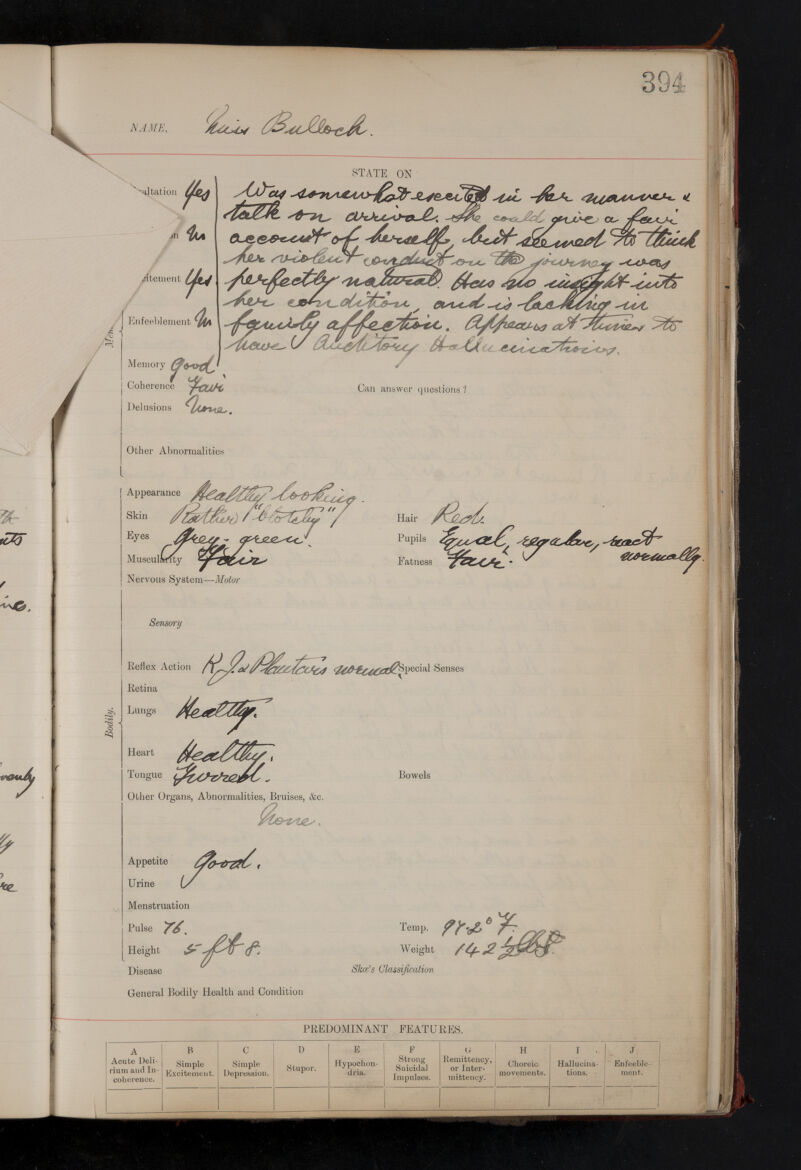 394
NAME. Miss Bulloch.
STATE ON
altation Yes Was somewhat excited in her manner &
talk on arrival. She could give a fair
n No account of herself, but seemed to think
her violent conduct on the journey was
itement Yes perfectly natural. Has no insight into
her condition, and is lacking in
Enfeeblement No family affection. Appears at times to
have Auditory Hallucinations.
Memory Good
Coherence Fair Can answer questions?
Delusions None.
Other Abnormalities
Appearance Healthy looking.
Skin Rather "blotchy" Hair Red.
Eyes Grey-green. Pupils Equal, regular, react
normally.
Muscularity Fair Fatness Fair.
Nervous System—Motor
Sensory
Reflex Action K.J. & Plantars normal. Special Senses
Retina
Bodily.
Lungs Healthy.
Heart Healthy.
Tongue Furred. Bowels
Other Organs, Abnormalities, Bruises, &c.
None.
Appetite Good.
Urine
Menstruation
Pulse 76. Temp. 97.2° F.
Height 5 ft 8. Weight 142 ½ lbs.
Disease Skæ's Classification
General Bodily Health and Condition
PREDOMINANT FEATURES.
A B C D E F G H I J
Acute Delirium and Incoherence. Simple Excitement. Simple Depression. Stupor. Hypochondria. Strong Suicidal Impulses. Remittency, or Intermittency. Choreic movements. Hallucinations. Enfeeblement.